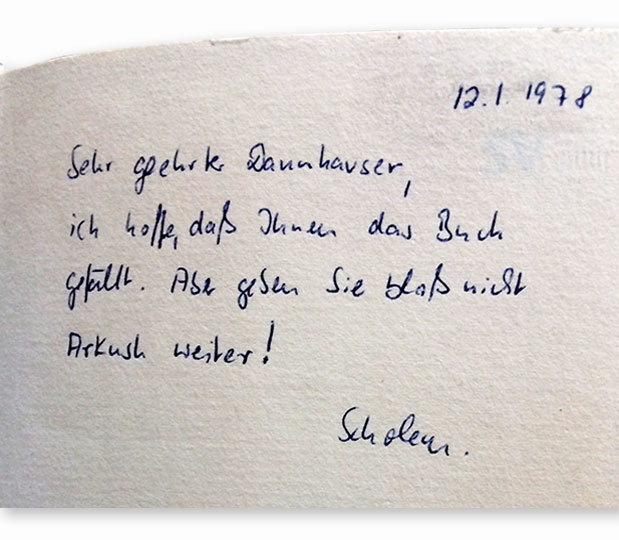 12.1.1978
Sehr geehrter Dannhauser,
ich hoffe, daß Ihnen das Buch
gefällt. Aber geben Sie bloß nicht
Arkush weiter!
Scholem.